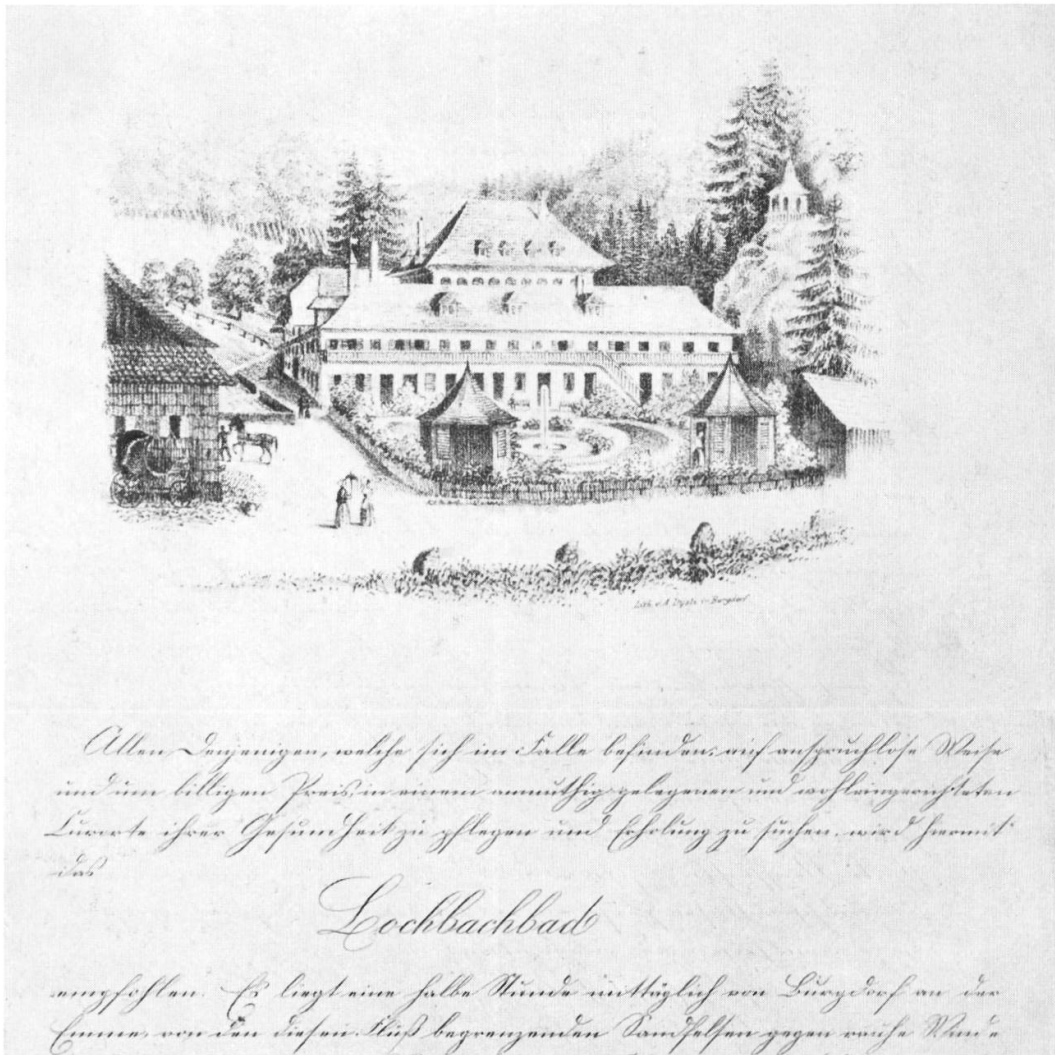 Lith. v. A. in Burgdorf
Allen Denjenigen, welche sich im Falle befinden, auf anspruchlose Weise
und um billigen Preis, in einem anmuthig gelegenen und wohleingerichteten
Curorte ihrer Gesundheit zu pflegen und Erholung zu suchen, wird hiermit
das
Lochbachbad
empfohlen. Es liegt eine halbe Stunde mittäglich von Burgdorf an der
Emme, von den diesen Fluß begrenzenden Sandfelsen gegen rauhe Winde